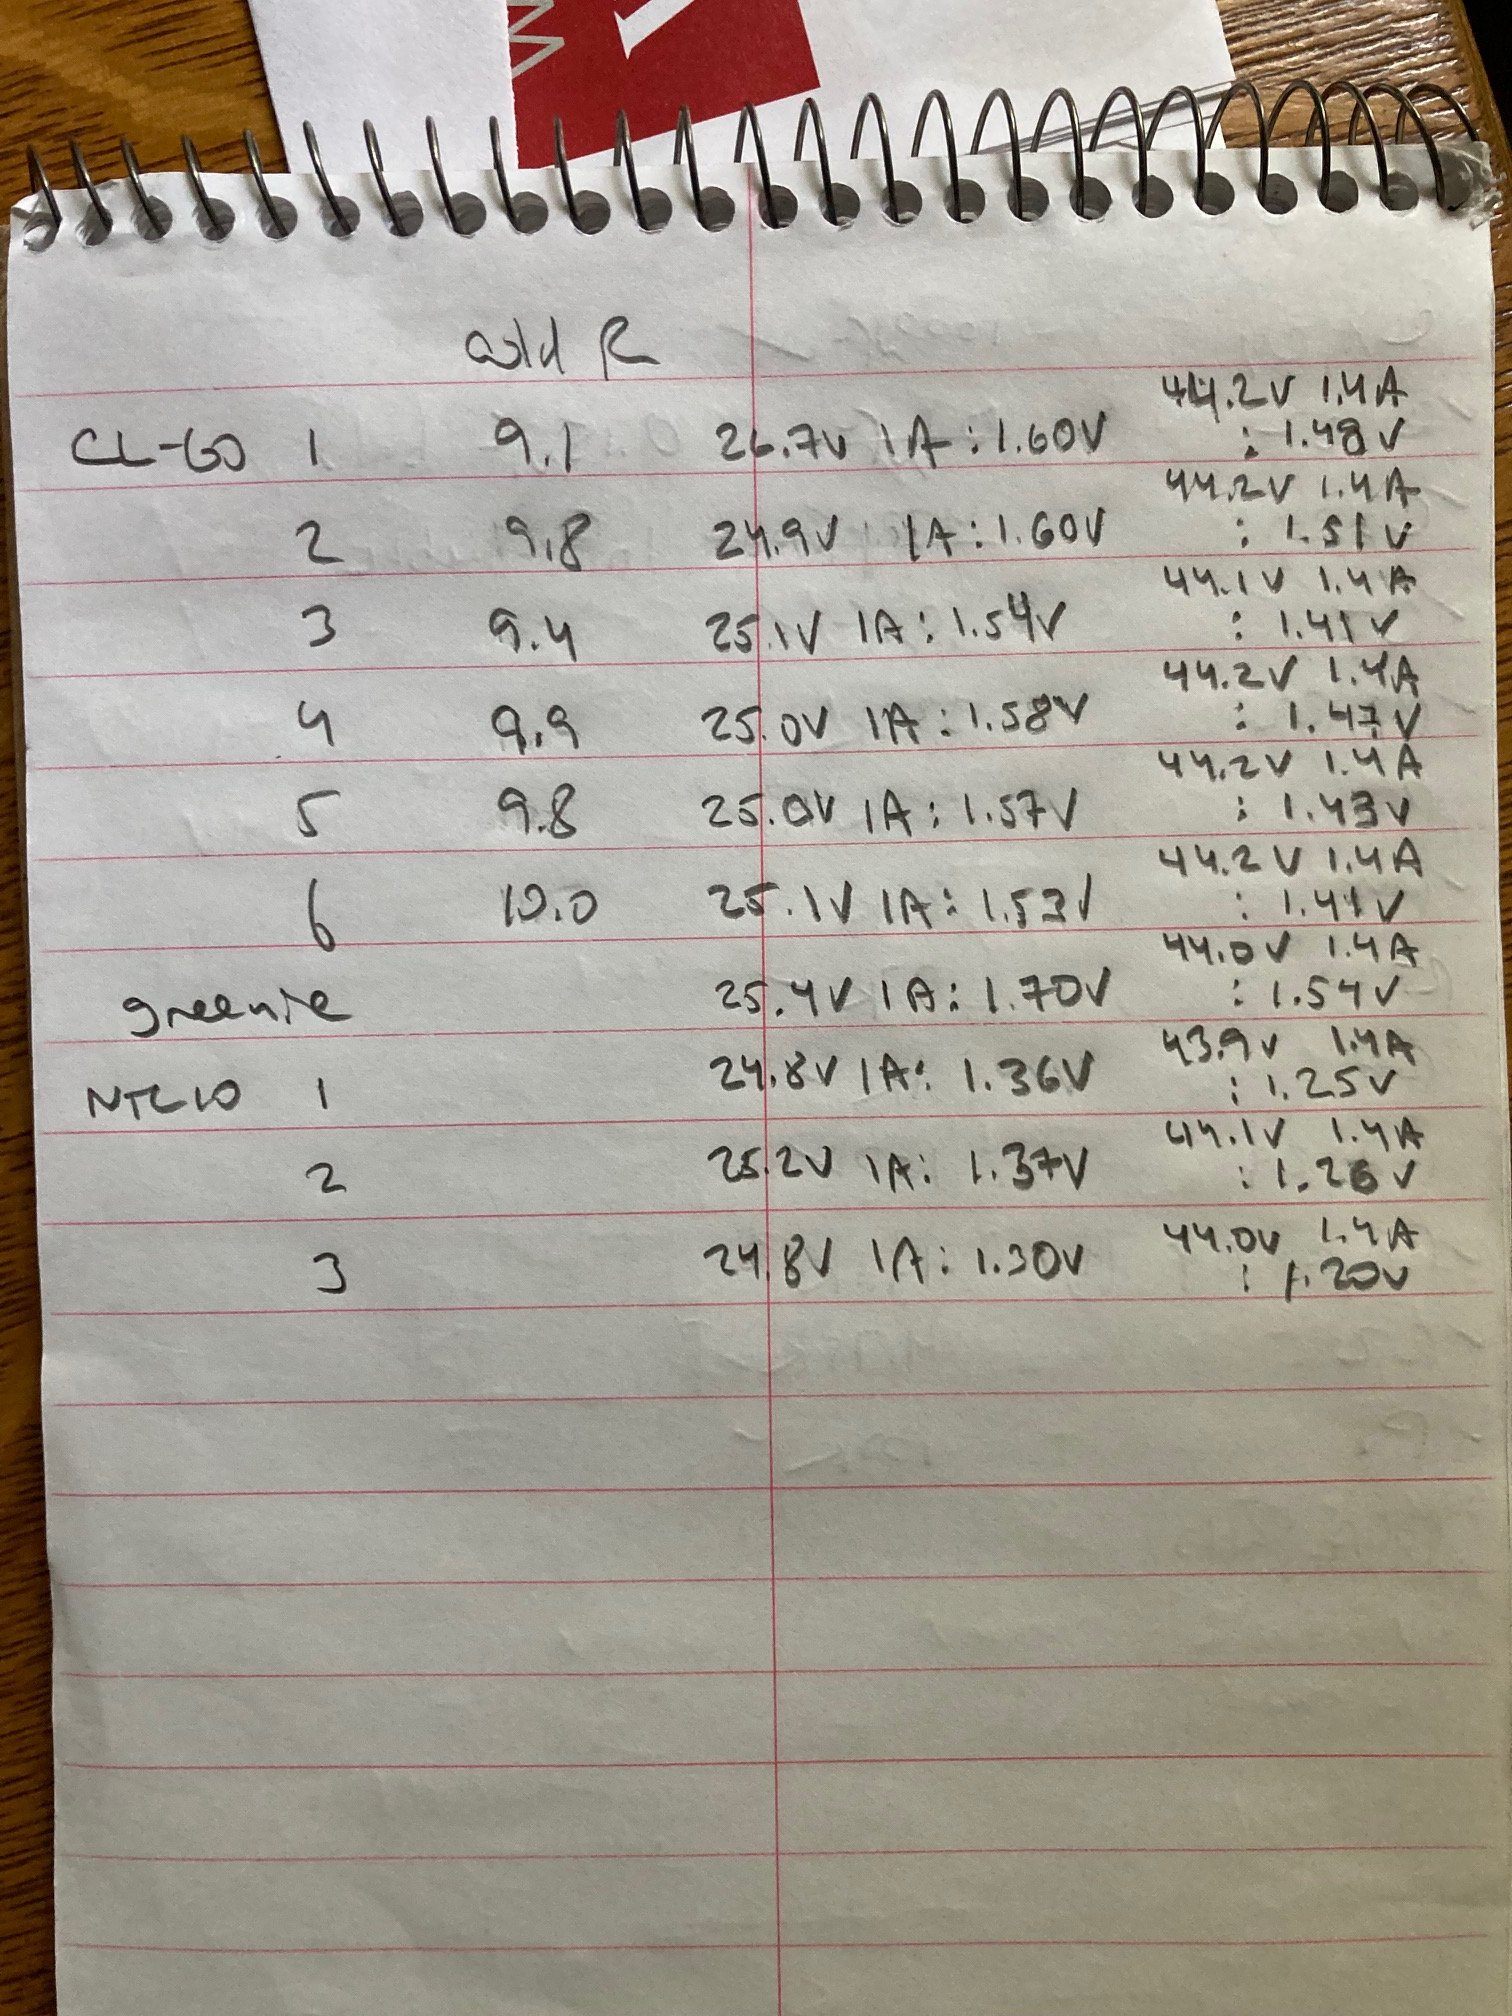 cold R
44.2V 1.4A
CL-60 1 9.1 26.7V 1A : 1.60V : 1.48V
44.2V 1.4A
2 9.8 24.9V 1A : 1.60V : 1.51V
44.1V 1.4A
3 9.4 25.1V 1A : 1.54V : 1.41V
44.2V 1.4A
4 9.9 25.0V 1A : 1.58V : 1.47V
44.2V 1.4A
5 9.8 25.0V 1A : 1.57V : 1.43V
44.2V 1.4A
6 10.0 25.1V 1A : 1.53V : 1.41V
44.0V 1.4A
greenie 25.4V 1A : 1.70V : 1.54V
43.9V 1.4A
NTC10 1 24.8V 1A : 1.36V : 1.25V
44.1V 1.4A
2 25.2V 1A : 1.37V : 1.26V
44.0V 1.4A
3 24.8V 1A : 1.30V : 1.20V